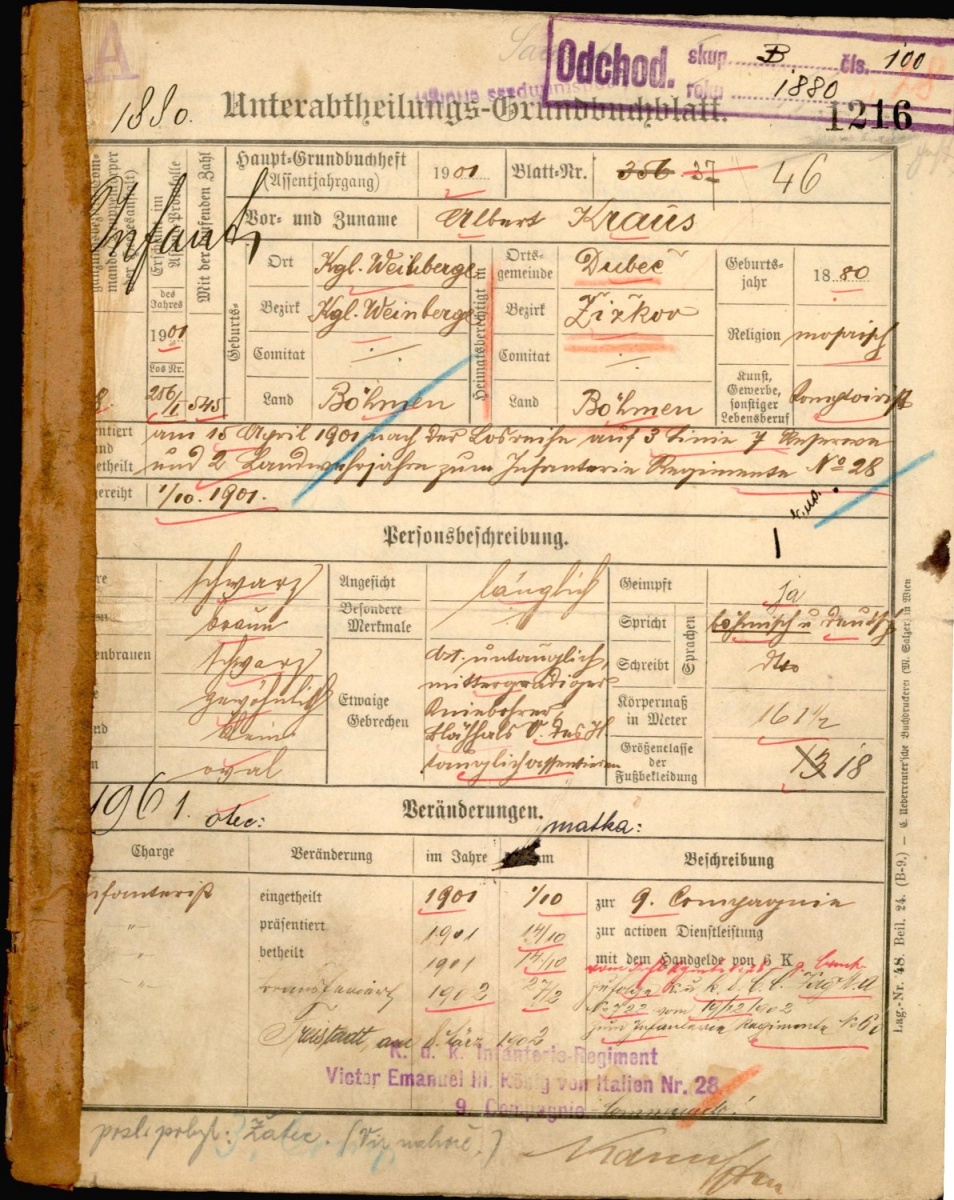 A
Odchod. skup. B čís. 100
roku 1880
1880. Unterabtheilungs-Grundbuchblatt. 1216
Haupt-Grundbuchheft
(Assentjahrgang) 1901 Blatt-Nr. 356 37 46
Infant
Erscheint im
des Jahres
1901
Los Nr.
286/I 545
Mit der laufenden Zahl
Vor- und Zuname Albert Kraus
Geburts-
Ort Kgl. Weinberge
Bezirk Kgl. Weinberge
Comitat
Land Böhmen
Heimatsberechtigt in
Ortsgemeinde Dubeč
Bezirk Žižkov
Comitat
Land Böhmen
Geburtsjahr 1880
Religion mosaisch
Kunst, Gewerbe, sonstiger Lebensberuf Comptoirist
am 15 April 1901 nach der Losreihe auf 3 Linie 7 Reserve
und 2 Landwehrjahre zum Infanterie Regimente No 28
gereiht 1/10. 1901.
Personsbeschreibung.
schwarz
braun
enbrauen schwarz
gewöhnlich
klein
oval
Angesicht länglich
Besondere Merkmale
Etwaige Gebrechen
dzt. untauglich,
mittergradiger
Kniebohrer
Blähhals
tauglich assentieren
Geimpft ja
Sprachen
Spricht böhmisch u deutsch
Schreibt dto
Körpermaß in Meter 161½
Größenclasse der Fußbekleidung 13 18
1961. otec: Veränderungen. matka:
Charge Veränderung im Jahre am Beschreibung
Infanterist eingetheilt 1901 1/10 zur 9. Compagnie
-"- präsentiert 1901 14/10 zur activen Dienstleistung
-"- betheilt 1901 14/10 mit dem Handgelde von 6 K
-"- transferiert 1902 27/2 zufolge
vom 19/12 1902
zum Infanterie Regimente
am März 1902
K. u. k. Infanterie-Regiment
Victor Emanuel III. König von Italien Nr. 28.
9. Compagnie
posl. pobyt: Žatec. (Viz nahoře.)
Lag.-Nr. '48. Beil. 24. (B-9.) — C. Ueberreuter'sche Buchdruckerei (M. Salzer) in Wien